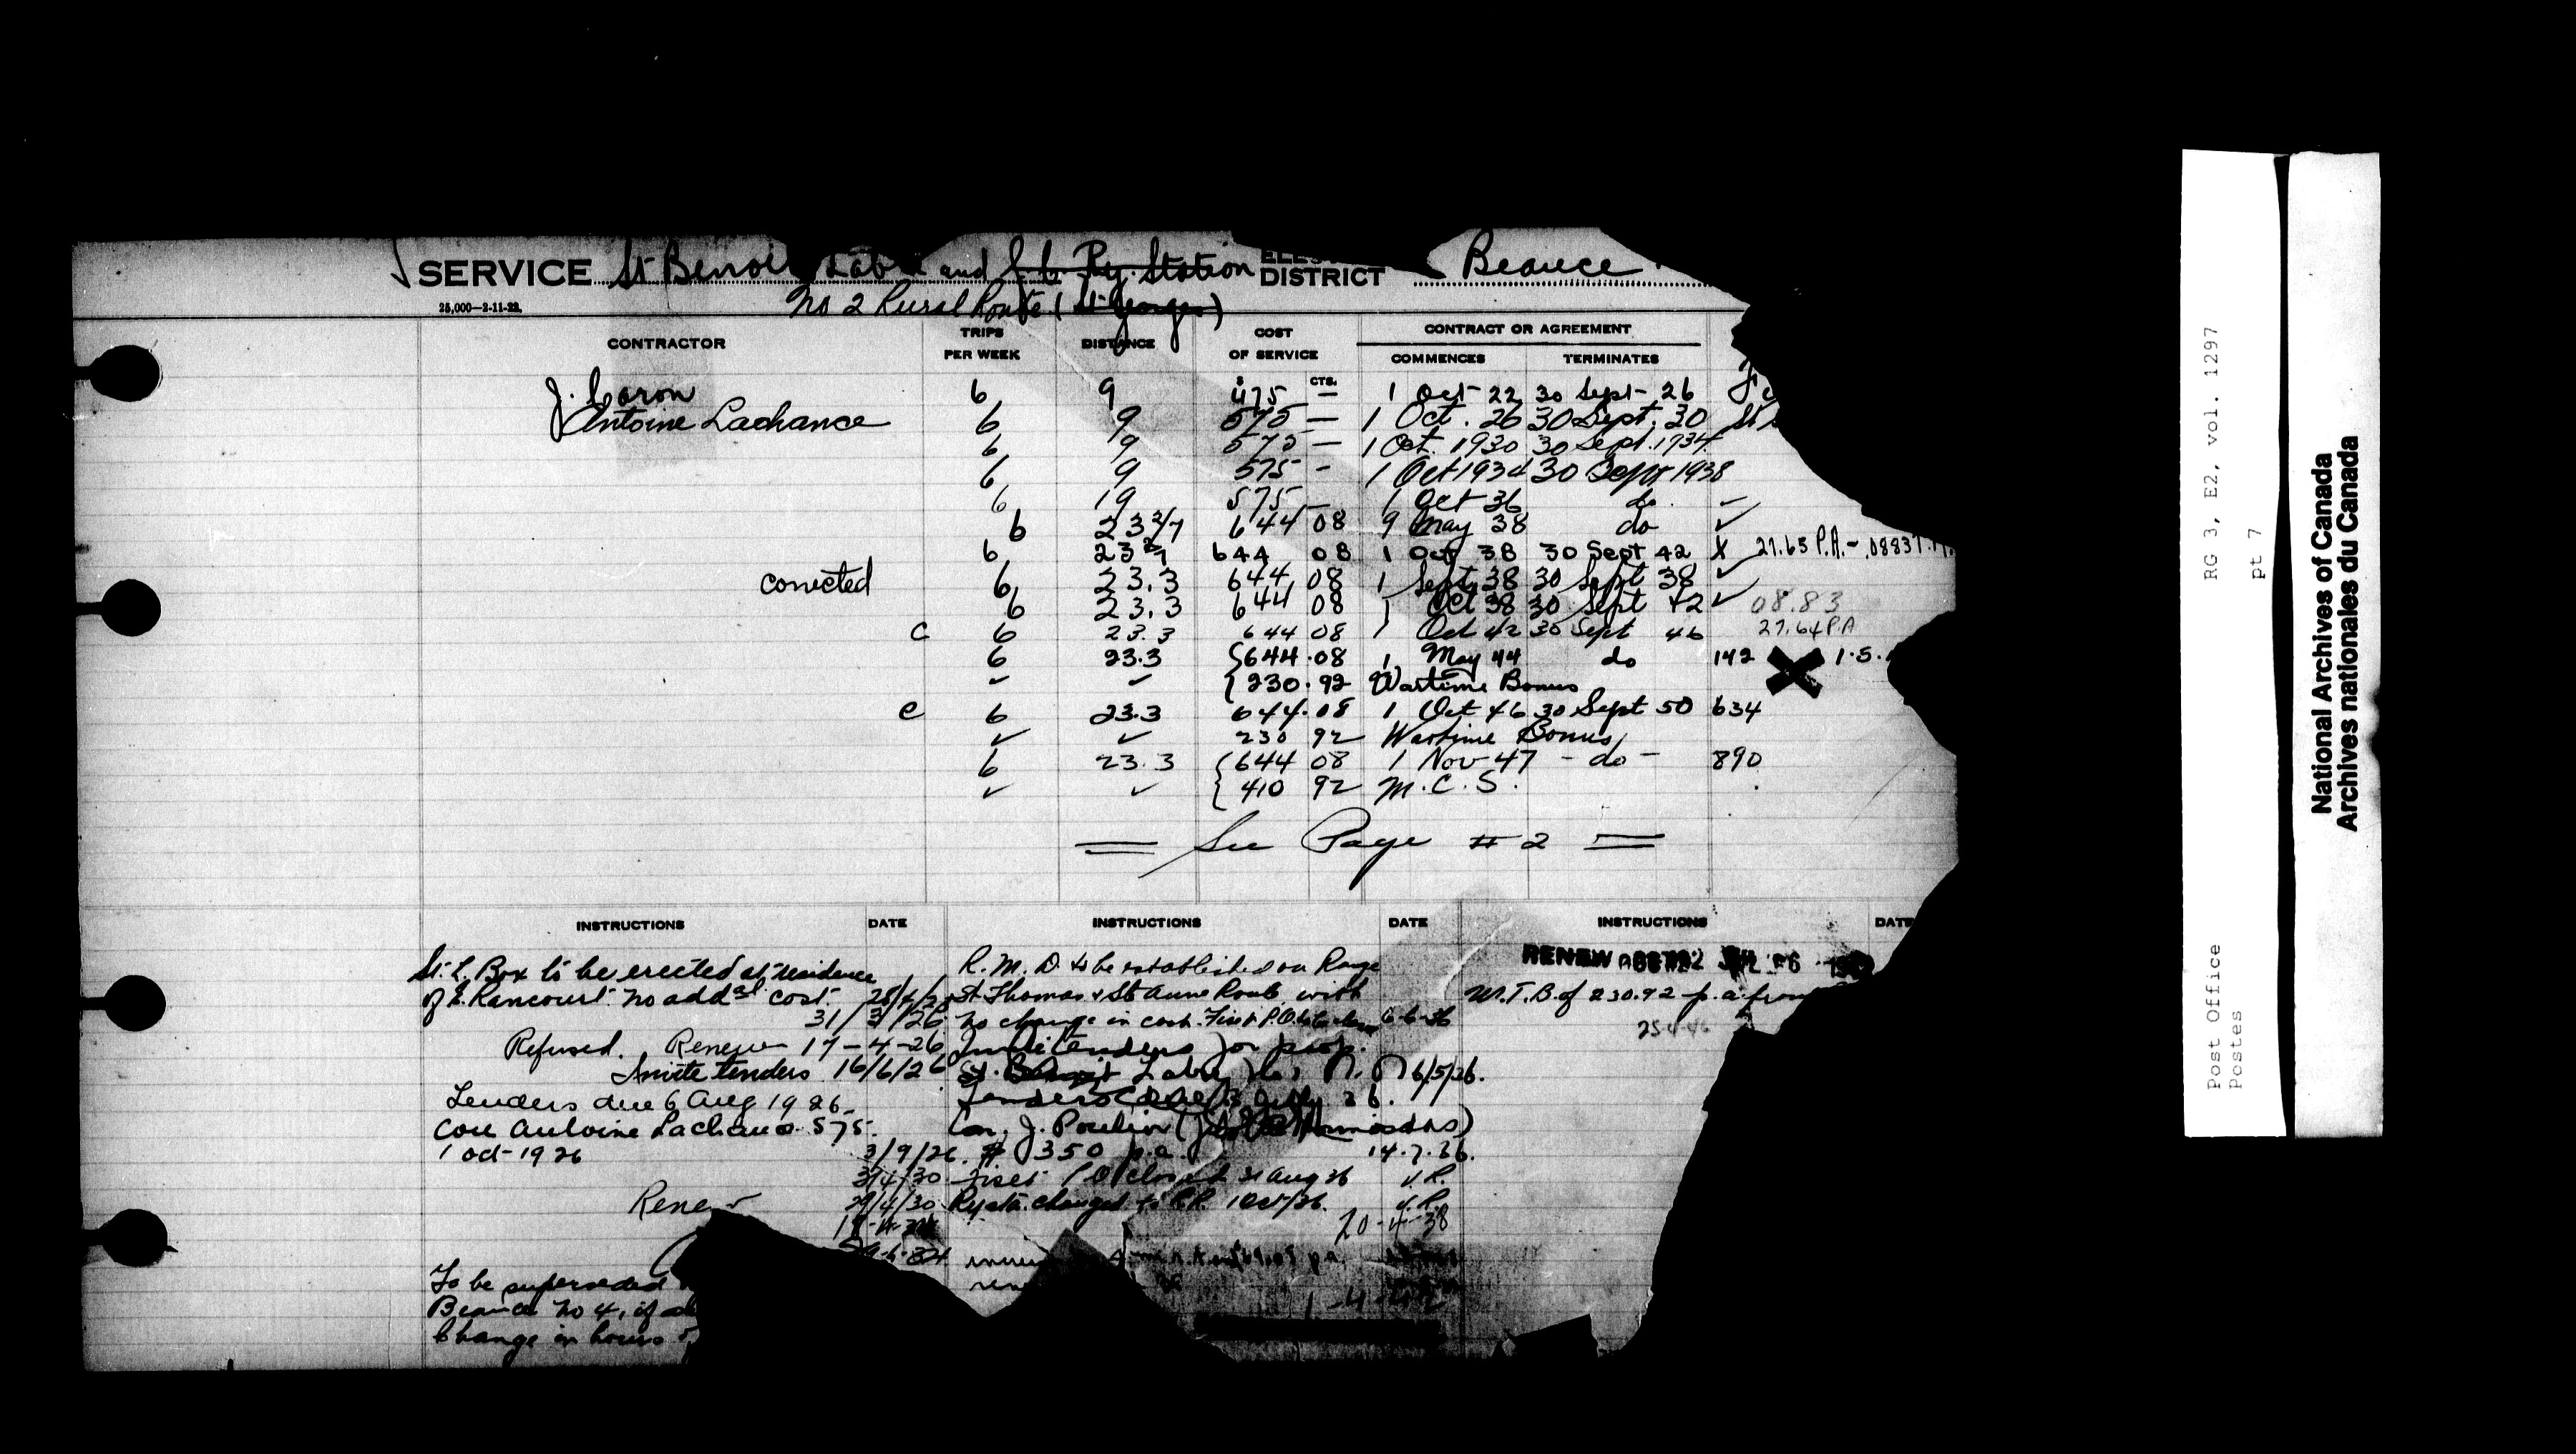 SERVICE St Benoit Lab and Q.C. Ry. Station ELEC DISTRICT Beauce
25,000—2-11-22. No 2 Rural Route (St Georges)
CONTRACTOR TRIPS PER WEEK DISTANCE COST OF SERVICE CONTRACT OR AGREEMENT
COMMENCES TERMINATES
$ CTS.
J. Caron 6 9 475 — 1 Oct 22 30 Sept 26
Antoine Lachance 6 9 575 — 1 Oct. 26 30 Sept. 30 St
6 9 575 — 1 Oct. 1930 30 Sept. 1934
6 9 575 - 1 Oct 1934 30 Sept 1938
6 19 575 — 1 Oct 36 do
6 23 2/7 644 08 9 May 38 do ✓
6 23 2/7 644 08 1 Oct 38 30 Sept 42 X 27.65 P.A. - .08837
corrected 6 23.3 644 08 1 Sept 38 30 Sept 38 ✓
6 23.3 644 08 1 Oct 38 30 Sept 42 ✓ 08.83
C 6 23.3 644 08 1 Oct 42 30 Sept 46 27.64 P.A
6 23.3 {644.08 1 May 44 do 142 X 1.5.
✓ ✓ {230.92 Wartime Bonus
C 6 23.3 644.08 1 Oct 46 30 Sept 50 634
✓ ✓ 230 92 Wartime Bonus
6 23.3 {644 08 1 Nov 47 - do - 890
✓ ✓ {410 92 M.C.S.
= See Page # 2 =
INSTRUCTIONS DATE INSTRUCTIONS DATE INSTRUCTIONS DATE
St. L. Box to be erected at residence
of E. Rancourt. No addal cost.
31/3/26
Refused. Renew 17-4-26
Invite tenders 16/6/26
Tenders due 6 Aug 1926
Con Antoine Lachance 575.
1 Oct 1926 3/9/26
3/4/30
Renew 29/4/30
To be superseded
Beauce No 4, if
Change in hours
R.M.D. to be established on Range
St Thomas & St Anne Route with
no change in cost. Fiset P.O. to be 6-6-36
Invite tenders for prop.
St. Benoit Labre 6/5/36.
Tenders due July 36.
Con. J. Poulin
$ 350 p.a. 14.7.36.
Fiset P.O closed 31 Aug 36
Ry sta. changed to R.R. 1 Oct/36.
20-4-38
1-4-42
RENEW
W.T.B. of 230.92 p.a. from
25-4-46
RG 3, E2, vol. 1297
pt 7
Post Office
Postes
National Archives of Canada
Archives nationales du Canada